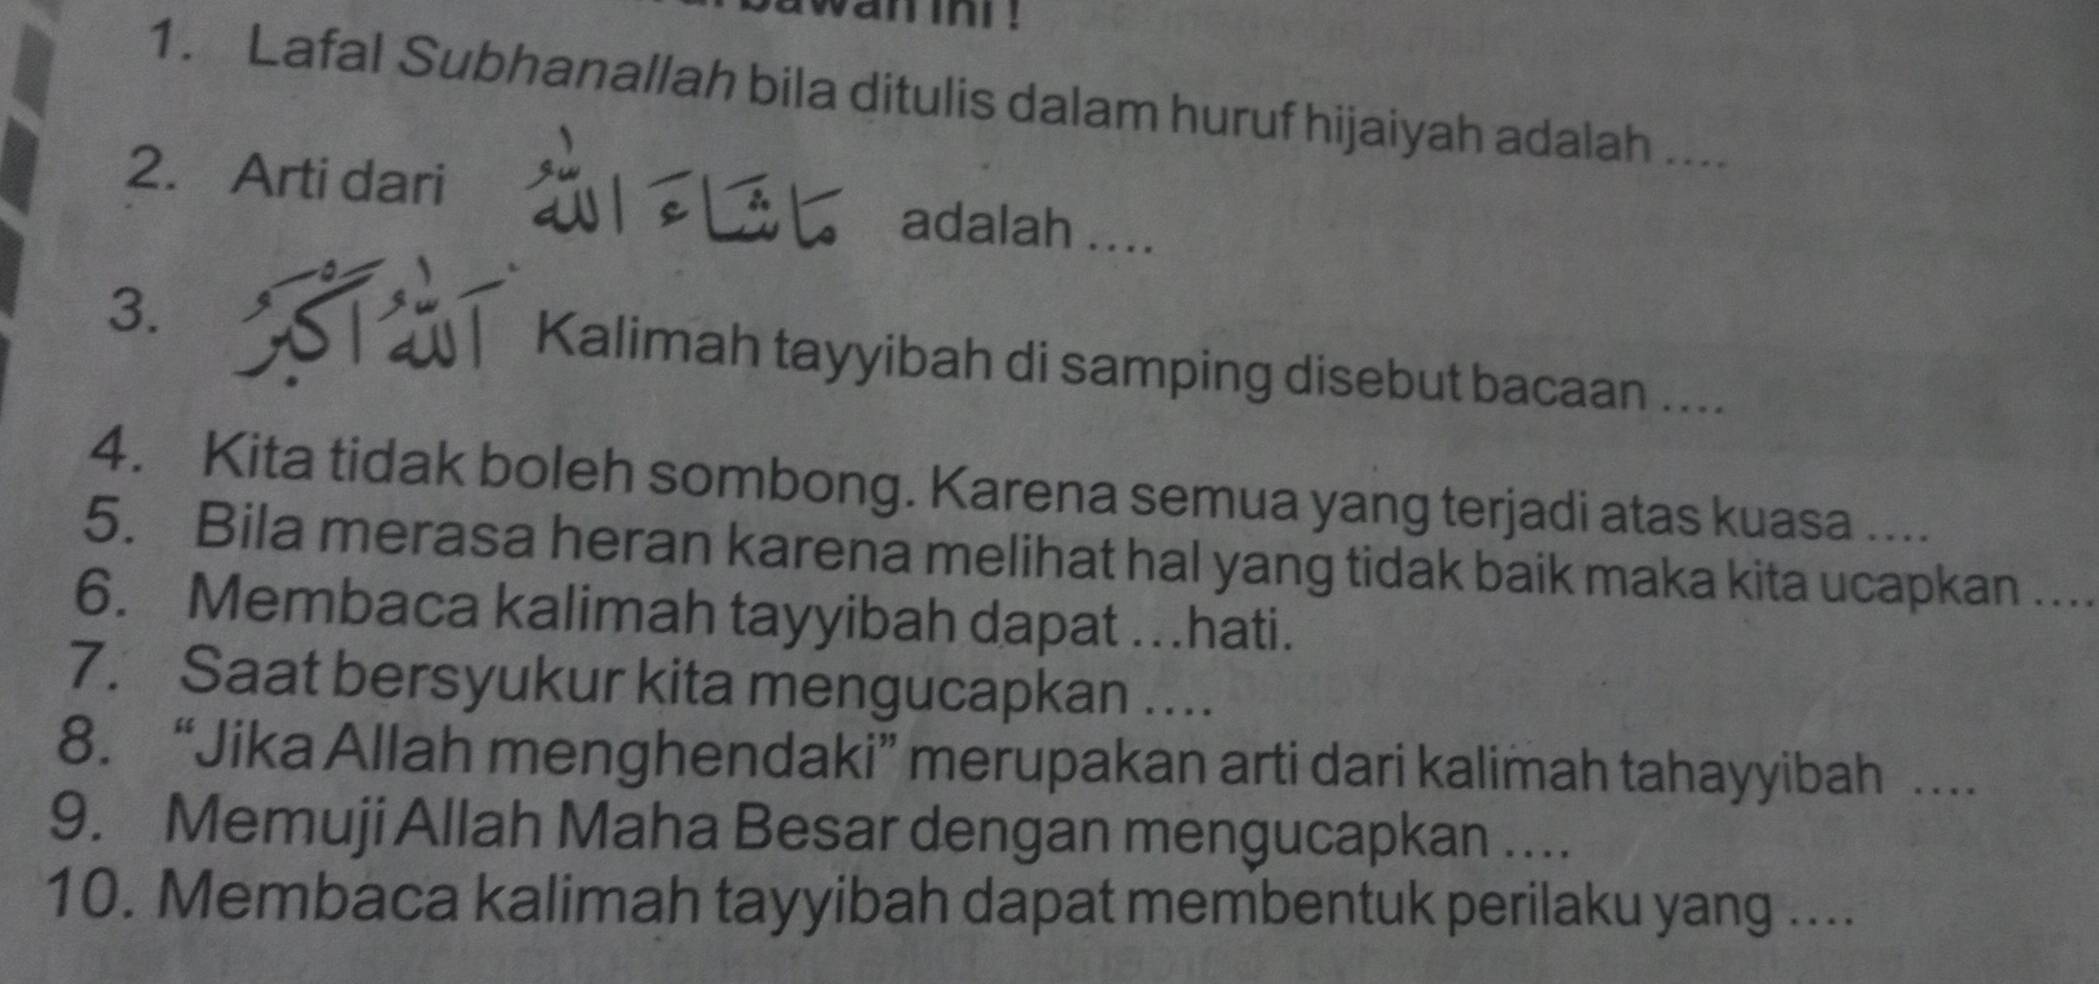 bawah ini !
1. Lafal Subhanallah bila ditulis dalam huruf hijaiyah adalah ....
2. Arti dari مَاشَاءَ اللّٰهُ adalah ....
3. اَللّٰهُ اَكْبَرُ Kalimah tayyibah di samping disebut bacaan ....
4. Kita tidak boleh sombong. Karena semua yang terjadi atas kuasa ....
5. Bila merasa heran karena melihat hal yang tidak baik maka kita ucapkan ....
6. Membaca kalimah tayyibah dapat ...hati.
7. Saat bersyukur kita mengucapkan ....
8. “Jika Allah menghendaki” merupakan arti dari kalimah tahayyibah ....
9. Memuji Allah Maha Besar dengan mengucapkan ....
10. Membaca kalimah tayyibah dapat membentuk perilaku yang ....